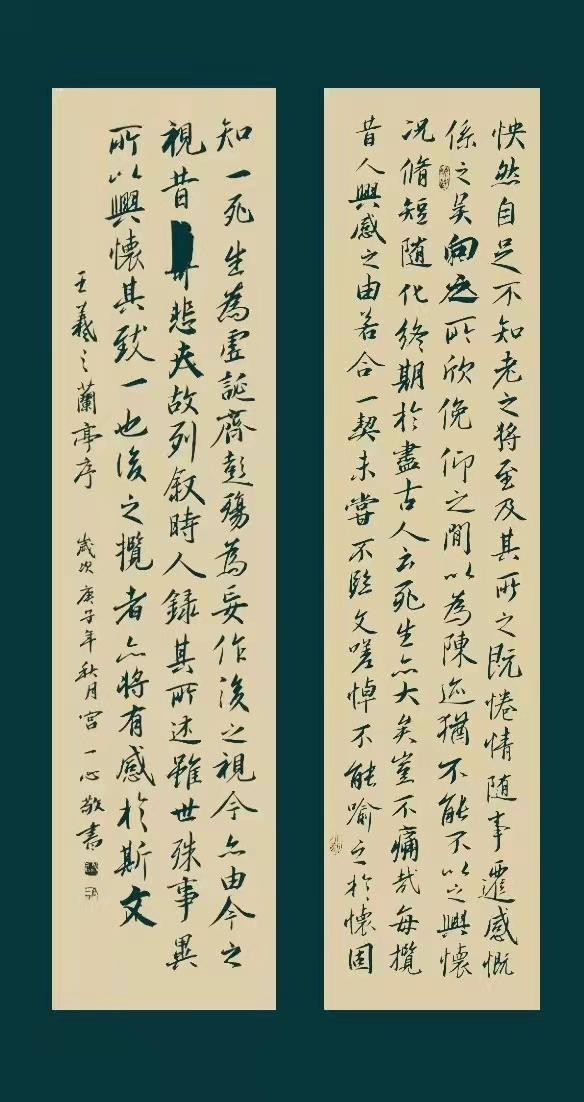 怏然自足不知老之将至及其所之既惓情随事遷感慨
係之矣向之所欣俛仰之閒以為陳迹猶不能不以之興懷
况脩短随化終期於盡古人云死生亦大矣豈不痛哉每攬
昔人興感之由若合一契未嘗不臨文嗟悼不能喻之於懷固
知一死生為虛誕齊彭殤為妄作後之視今亦由今之
視昔悲夫故列叙時人録其所述雖世殊事異
所以興懷其致一也後之攬者亦將有感於斯文
王羲之蘭亭序
歲次庚子年秋月宫一心敬書